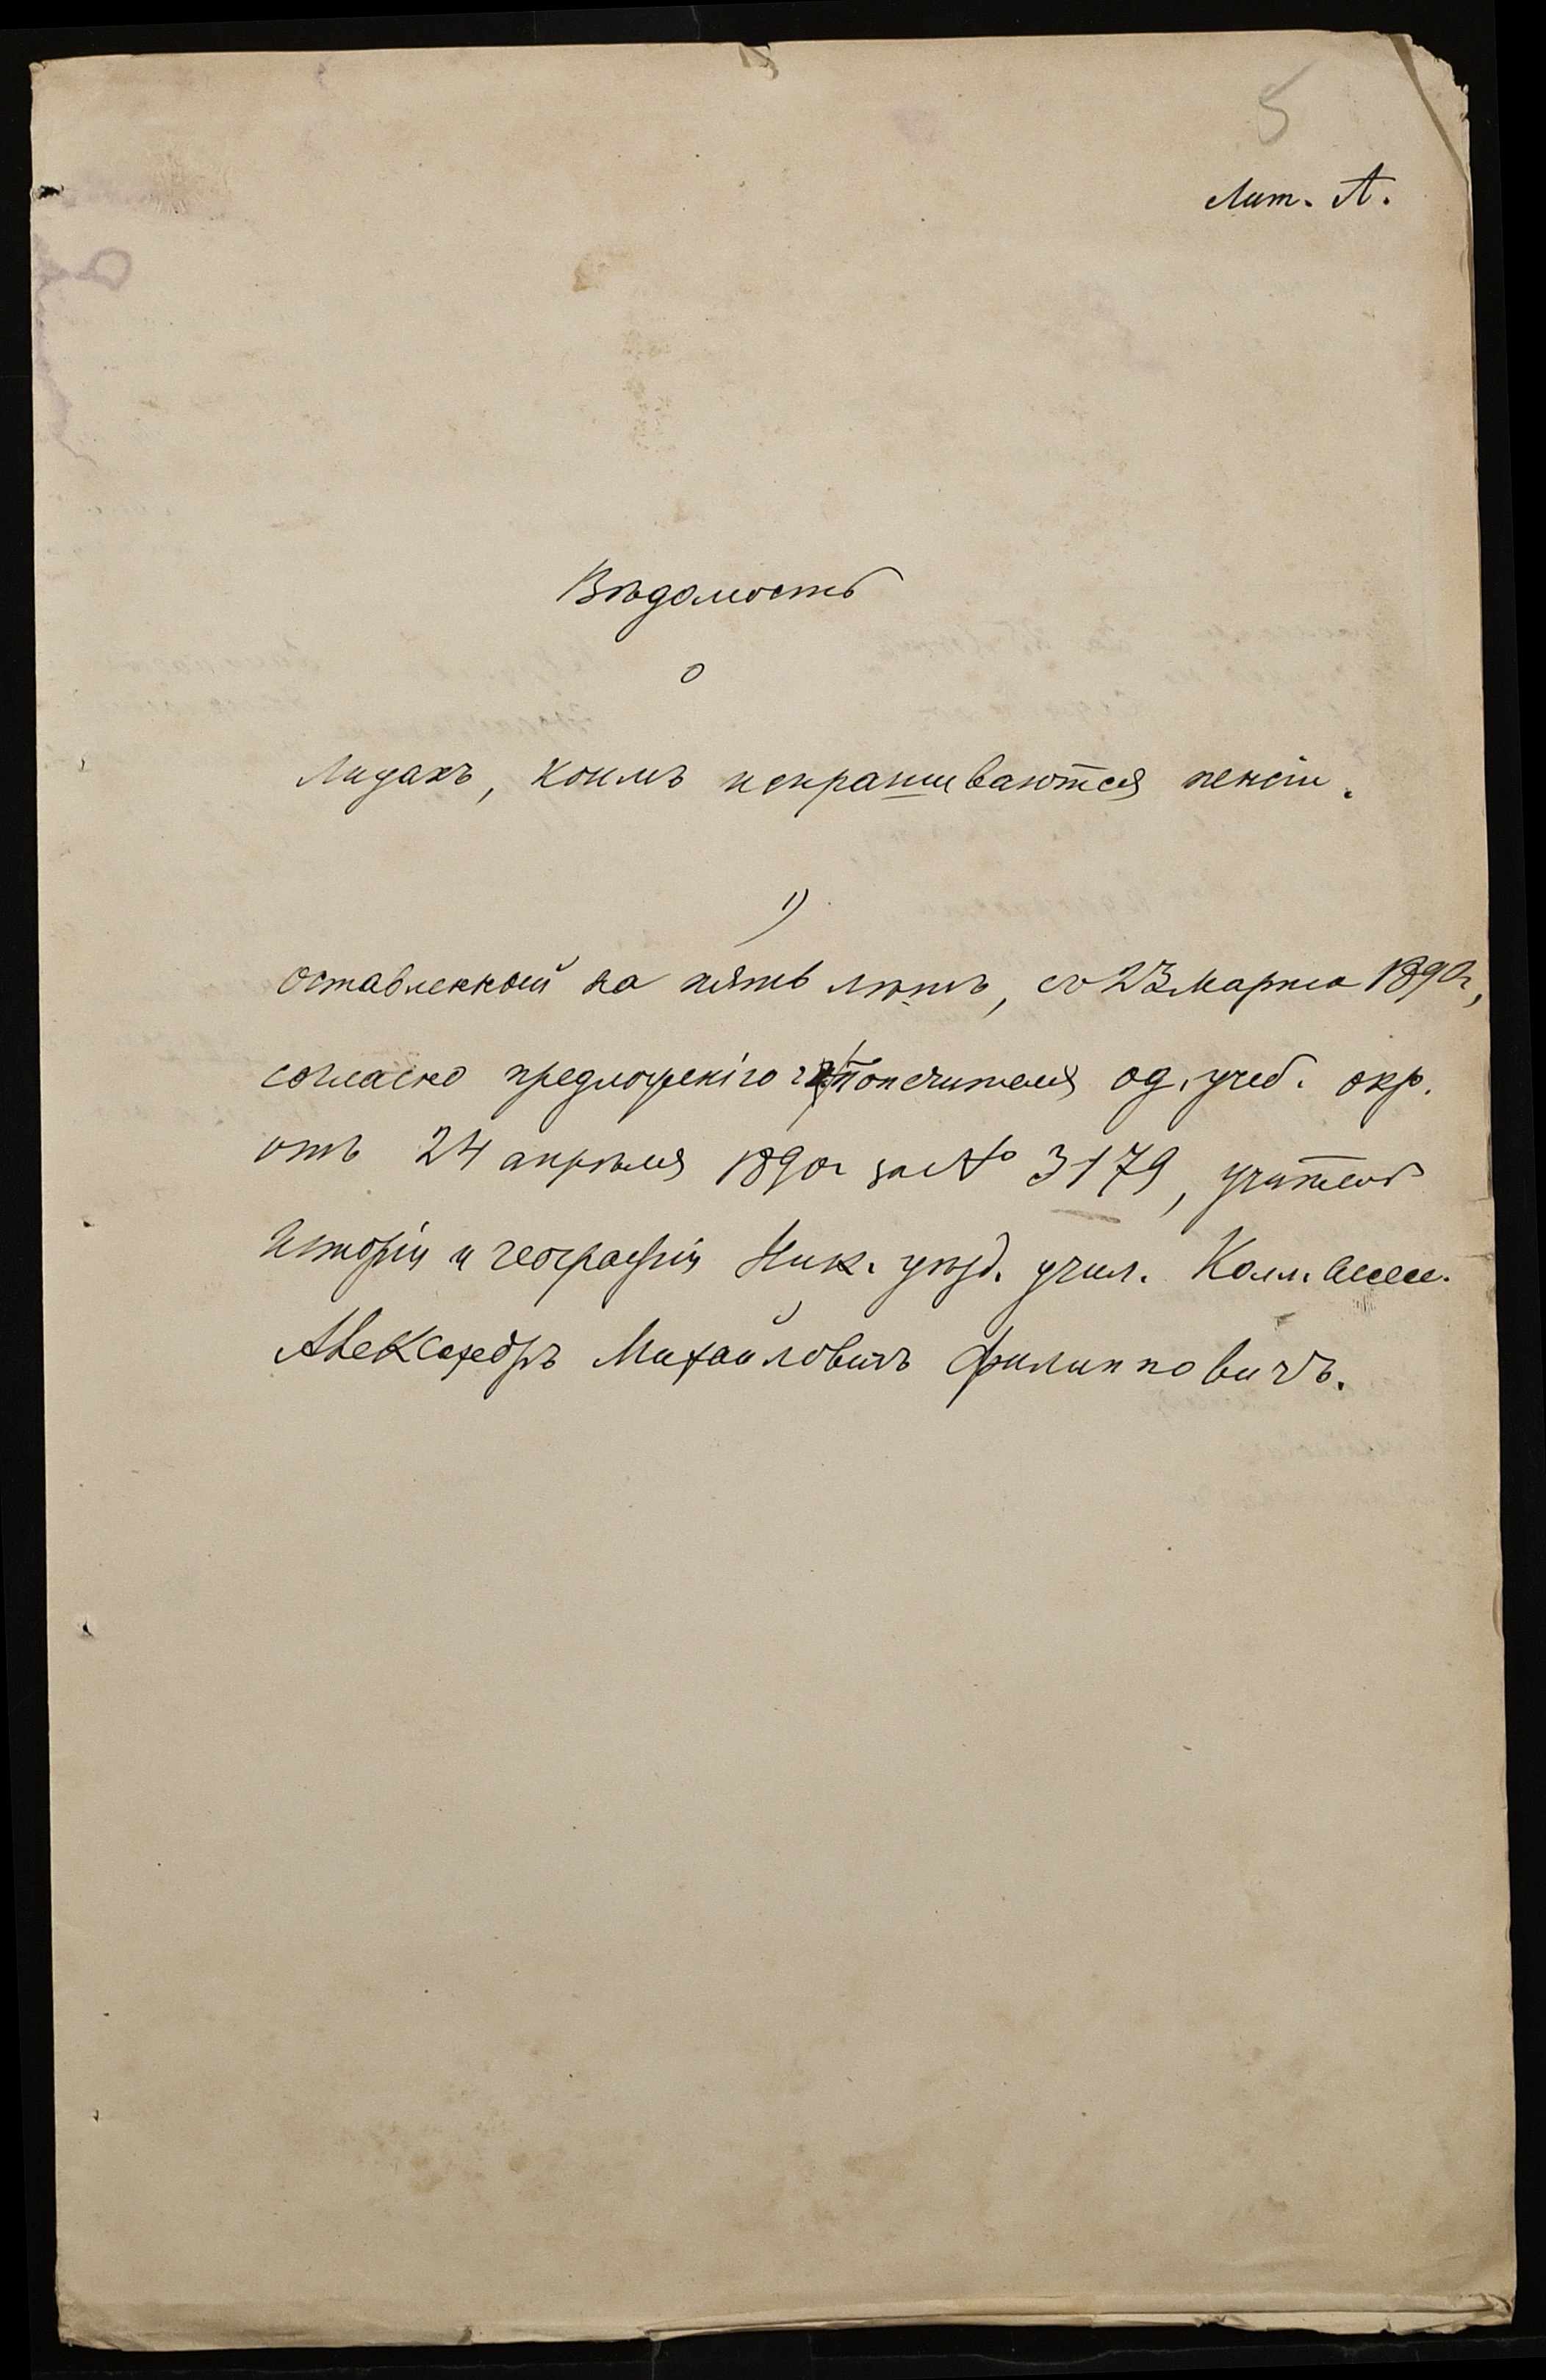 5
Лит. А.
Вѣдомость
о
лицахъ, коимъ испрашиваются пенсіи.
1)
Оставленный на пять лѣтъ, съ 23 марта 1890г,
согласно предложенію г. Попечителя од. учеб. окр.
отъ 24 апрѣля 1890г за № 3179, учитель
исторіи и географіи Ник. уѣзд. учил. Колл. Ассес.
Александръ Михайловичъ Филипповичъ.